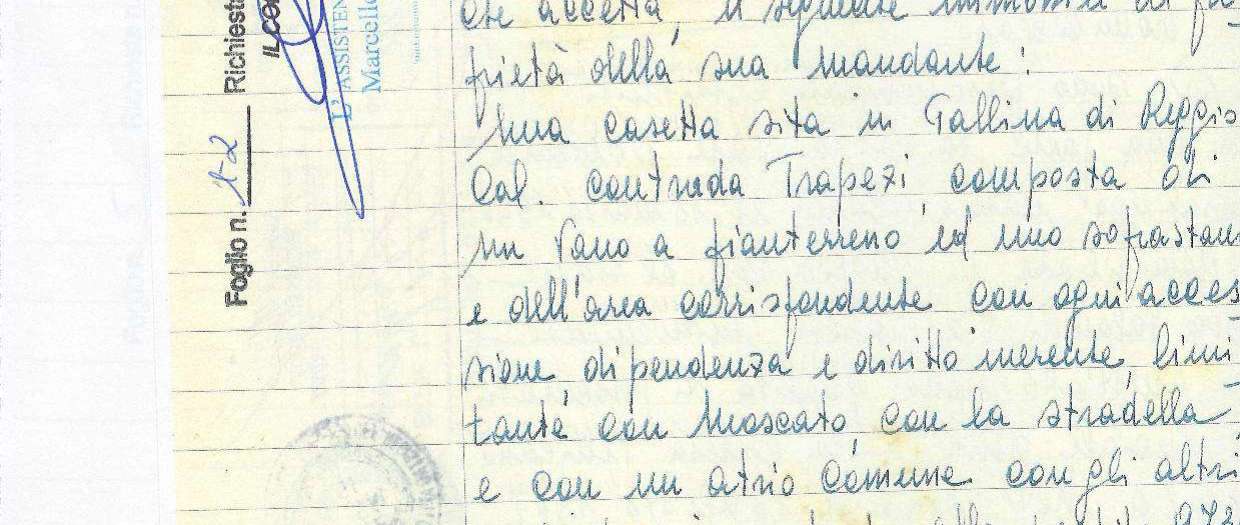 che accetta, il seguente immobile di pro
prietà della sua mandante:
Una casetta sita in Gallina di Reggio
Cal. contrada Trapezi, composta di
un vano a pianterreno ed uno soprastan
e dell'area corrispondente con ogni acces
sione dipendenza e diritto inerente, limi
tante con Moscato, con la stradella
e con un atrio comune con gli altri
Foglio n. 1-2 Richiest
IL CO
L'ASSISTEN
Marcello